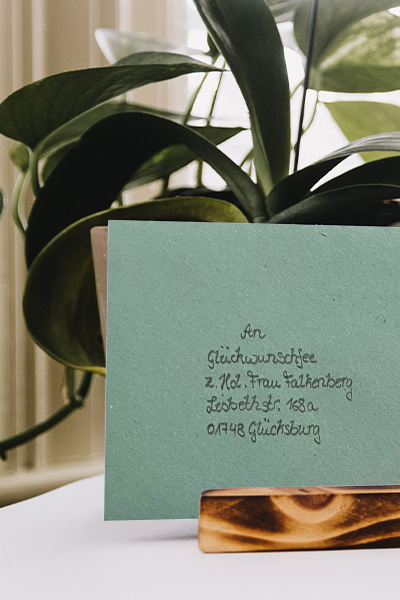 An
Glückwunschfee
z. Hd. Frau Falkenberg
Lisbethstr. 168a
01748 Glücksburg